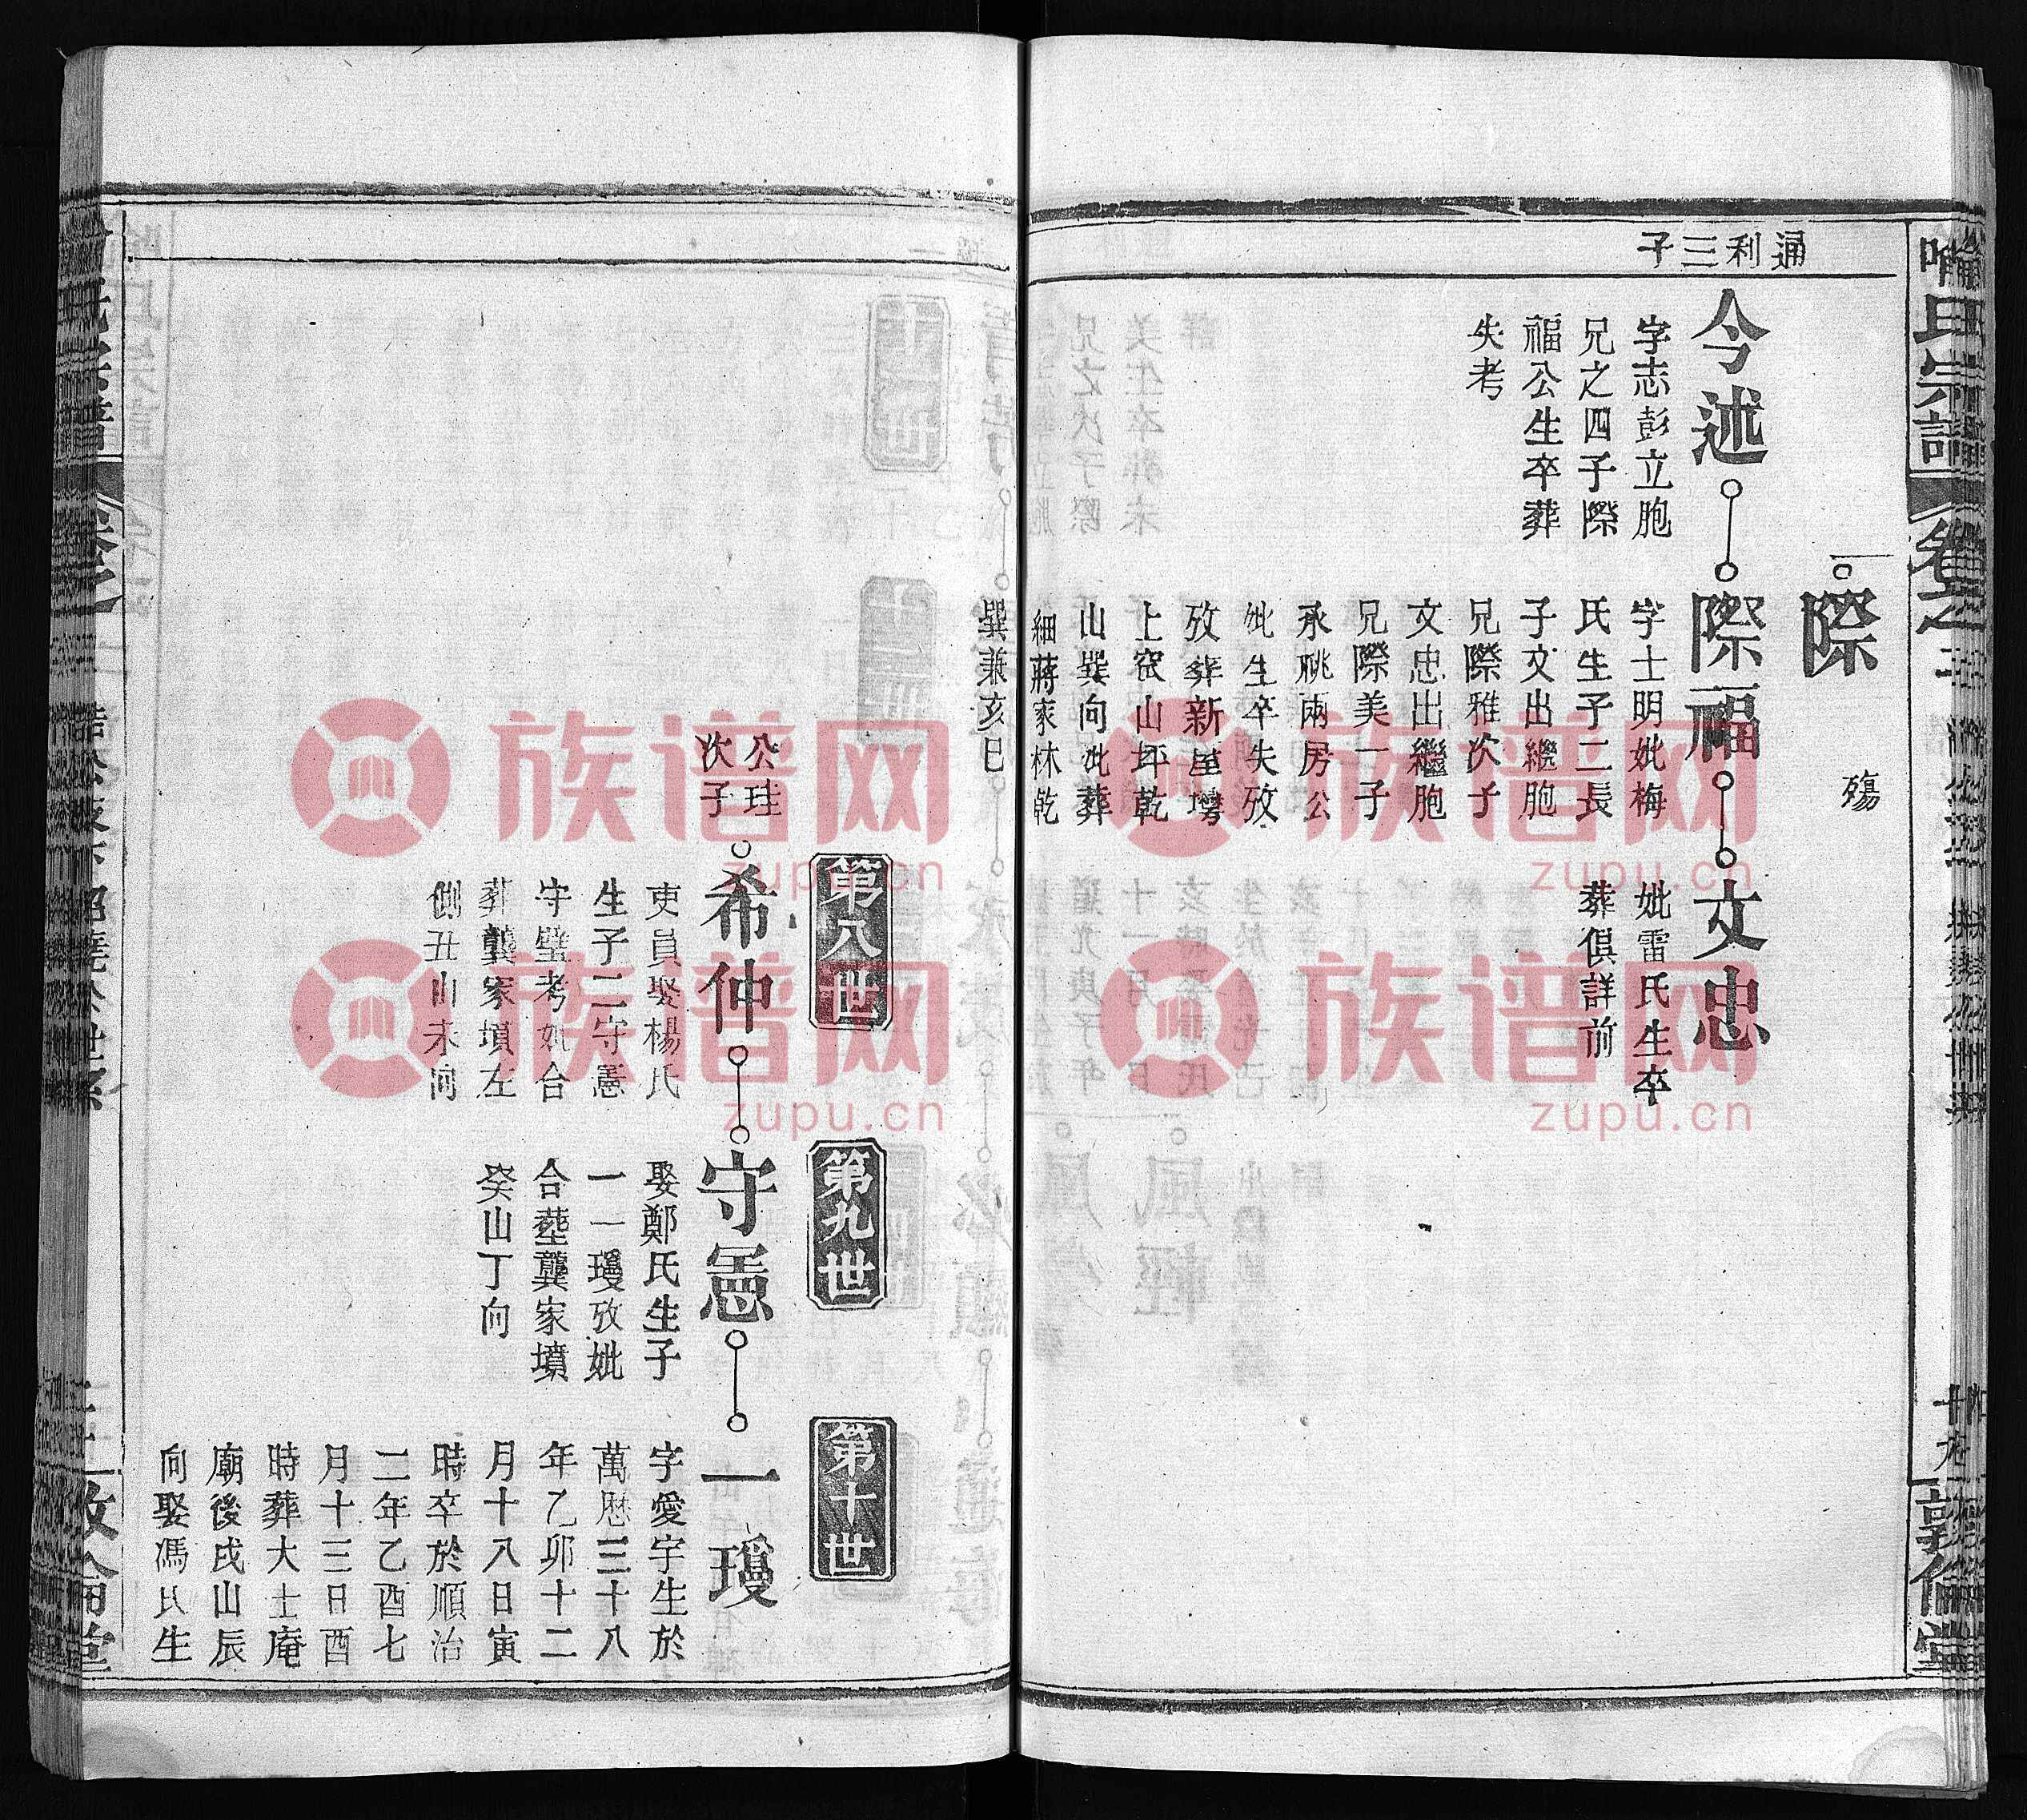 喻氏宗譜
卷之
十九
敦倫堂
通利三子
際
殤
今述
字志彭立胞
兄之四子際
福公生卒葬
失考
際福
字士明妣梅
氏生子二長
子文出繼胞
兄際雅次子
文忠出繼胞
兄際美一子
承祧兩房公
妣生卒失攷
攷葬新屋塆
上窊山坪乾
山巽向妣葬
細蔣家林乾
巽兼亥巳
文忠
妣雷氏生卒
葬俱詳前
第八世
第九世
第十世
公珪
次子
希仲
吏員娶楊氏
生子二守憲
守壁考妣合
葬龔家墳左
側丑山未向
守憲
娶鄭氏生子
一一瓊攷妣
合塟龔家墳
癸山丁向
一瓊
字愛宇生於
萬歷三十八
年乙卯十二
月十八日寅
時卒於順治
二年乙酉七
月十三日酉
時葬大士庵
廟後戌山辰
向娶馮氏生
族谱网
zupu.cn
族谱网
zupu.cn
族谱网
zupu.cn
族谱网
zupu.cn